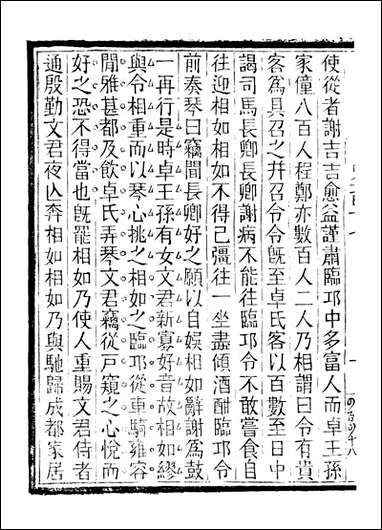 使從者謝吉吉愈益謹肅臨邛中多富人而卓王孫
家僮八百人程鄭亦數百人二人乃相謂曰令有貴
客為具召之幷召令令旣至卓氏客以百數至日中
謁司馬長卿長卿謝病不能往臨邛令不敢嘗食自
往迎相如相如不得已彊往一坐盡傾酒酣臨邛令
前奏琴曰竊聞長卿好之願以自娛相如辭謝為鼓
一再行是時卓王孫有女文君新寡好音故相如繆
與令相重而以琴心挑之相如之臨邛從車騎雍容
閒雅甚都及飲卓氏弄琴文君竊從戶窺之心悅而
好之恐不得當也旣罷相如乃使人重賜文君侍者
通殷勤文君夜亾奔相如相如乃與馳歸成都家居